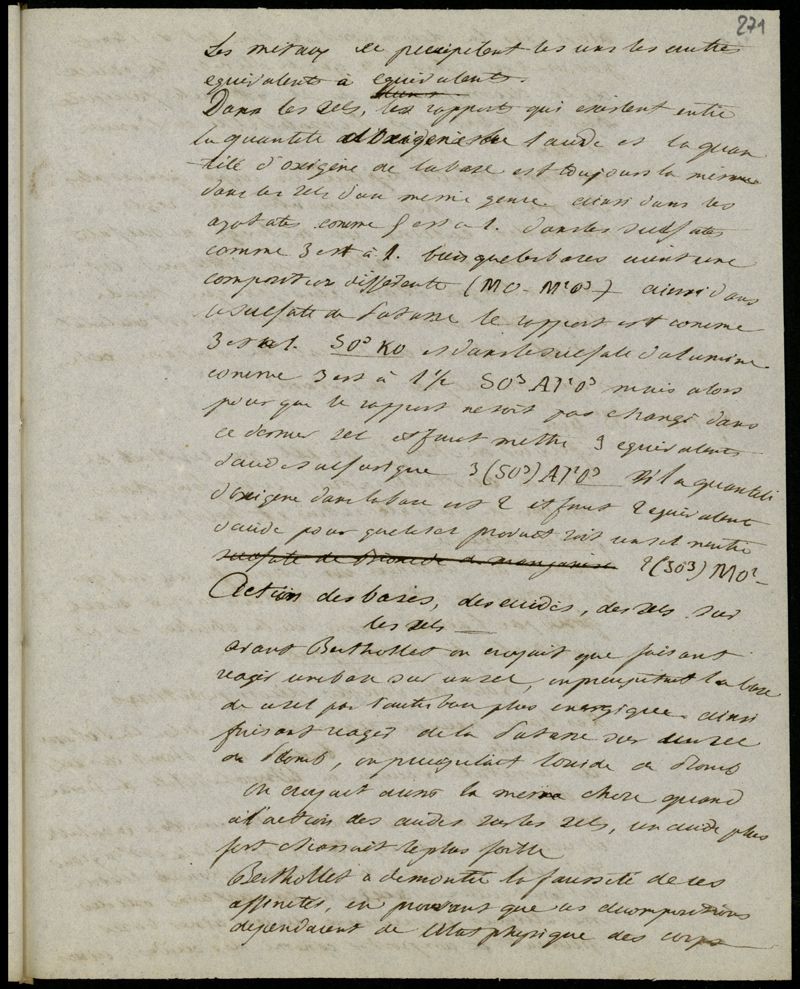 271
Les metaux se precipitent les uns les autres
equivalents à equivalents.
Dans les sels, les rapports qui existent entre
la quantité d'Oxigene de l'acide et la quan
tité d'oxigène de la base est toujours la meme
dans les sels d'un meme genre ainsi dans les
azotates comme 5 est a 1. dans les sulfates
comme 3 est à 1. bien que les bases aient une
composition differente (MO - M²O³) ainsi dans
le sulfate de Potasse le rapport est comme
3 est a 1. SO³ KO et dans le sulfate d'alumine
comme 3 est à 1½ SO³ Al²O³ mais alors
pour que le rapport ne soit pas changé dans
ce dernier sel il faut mettre 3 equivalents
d'acide sulfurique 3(SO³) Al²O³ si la quantité
d'oxigene dans la base est 2 il faut 2 equivalents
d'acide pour que le sel produit soit un sel neutre
sulfate de Bioxide de manganese 2(SO³) MO²-
Action des bases, des acides, des sels sur
les sels
avant Berthollet on croyait que faisant
reagir une base sur un sel, on precipitait la base
de ce sel par l'autre base plus energique. ainsi
faisant reagir de la Potasse sur un sel
de Plomb, on precipitait l'oxide de Plomb
On croyait aussi la meme chose quand
à l'action des acides sur les sels, un acide plus
fort chassait le plus faible
Berthollet a demontré la fausseté de ces
affinités, en prouvant que ces decompositions
dependaient de l'etat physique des corps